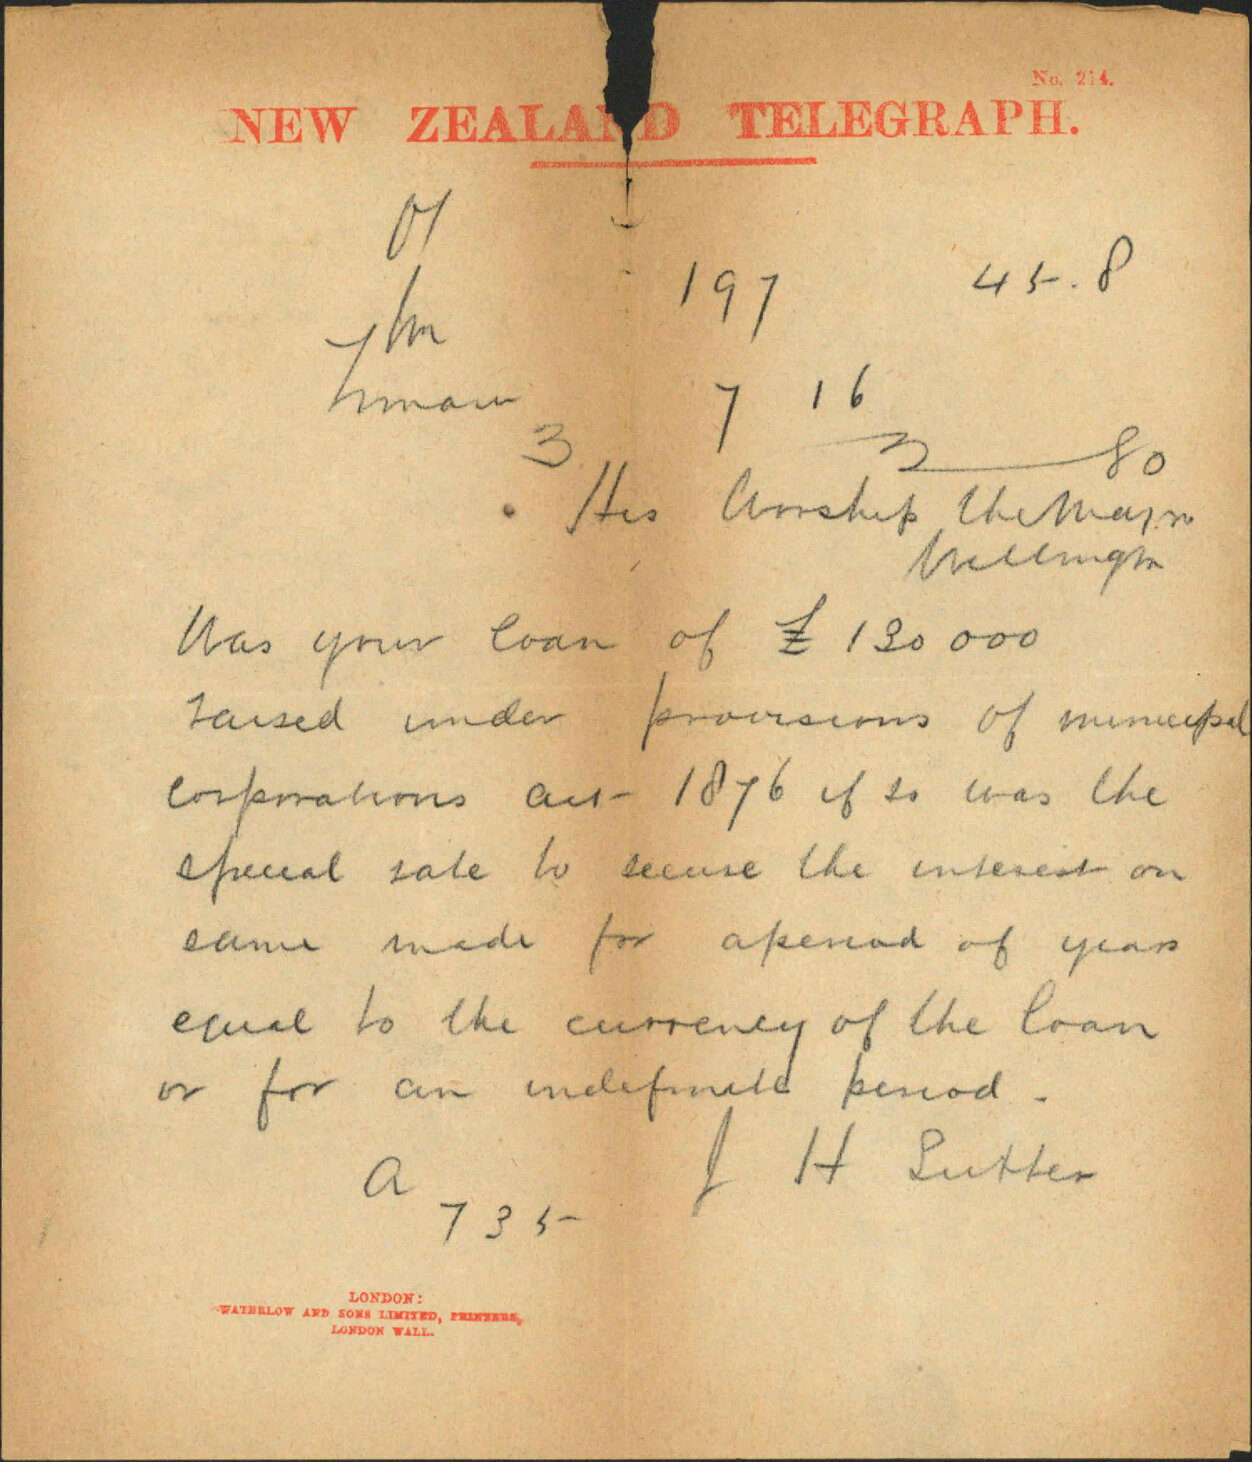 No. 214.
NEW ZEALAND TELEGRAPH.
197 45.8
Timaru
7 16
3 80
3
His Worship the Mayor
Wellington
Was your loan of £130 000
raised under provisions of municipal
corporations act 1876 if so was the
special rate to secure the interest on
same made for a period of years
equal to the currency of the loan
or for an indefinite period.
J H Sutter
a
735
LONDON:
WATERLOW AND SONS LIMITED, PRINTERS,
LONDON WALL.